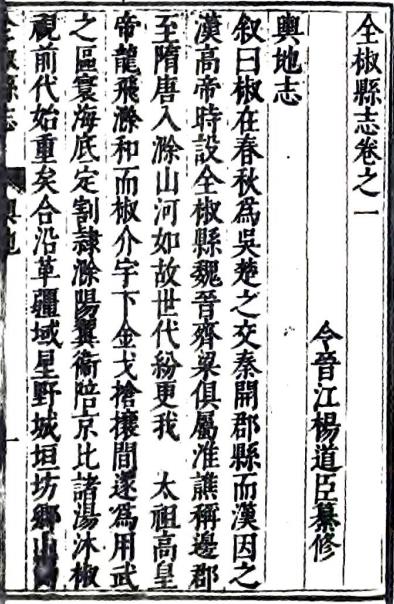 全椒縣志卷之一
今晉江楊道臣纂修
輿地志
叙曰椒在春秋為吳楚之交秦開郡縣而漢因之
漢高帝時設全椒縣魏晉齊梁俱屬淮譙稱邊郡
至隋唐入滁山河如故世代紛更我 太祖高皇
帝龍飛滁和而椒介宇下金戈搶攘間遂為用武
之區寰海底定割隸滁陽翼衞陪京比諸湯沐椒
視前代始重矣合沿革疆域星野城垣坊鄉山
全椒縣志 輿地 一